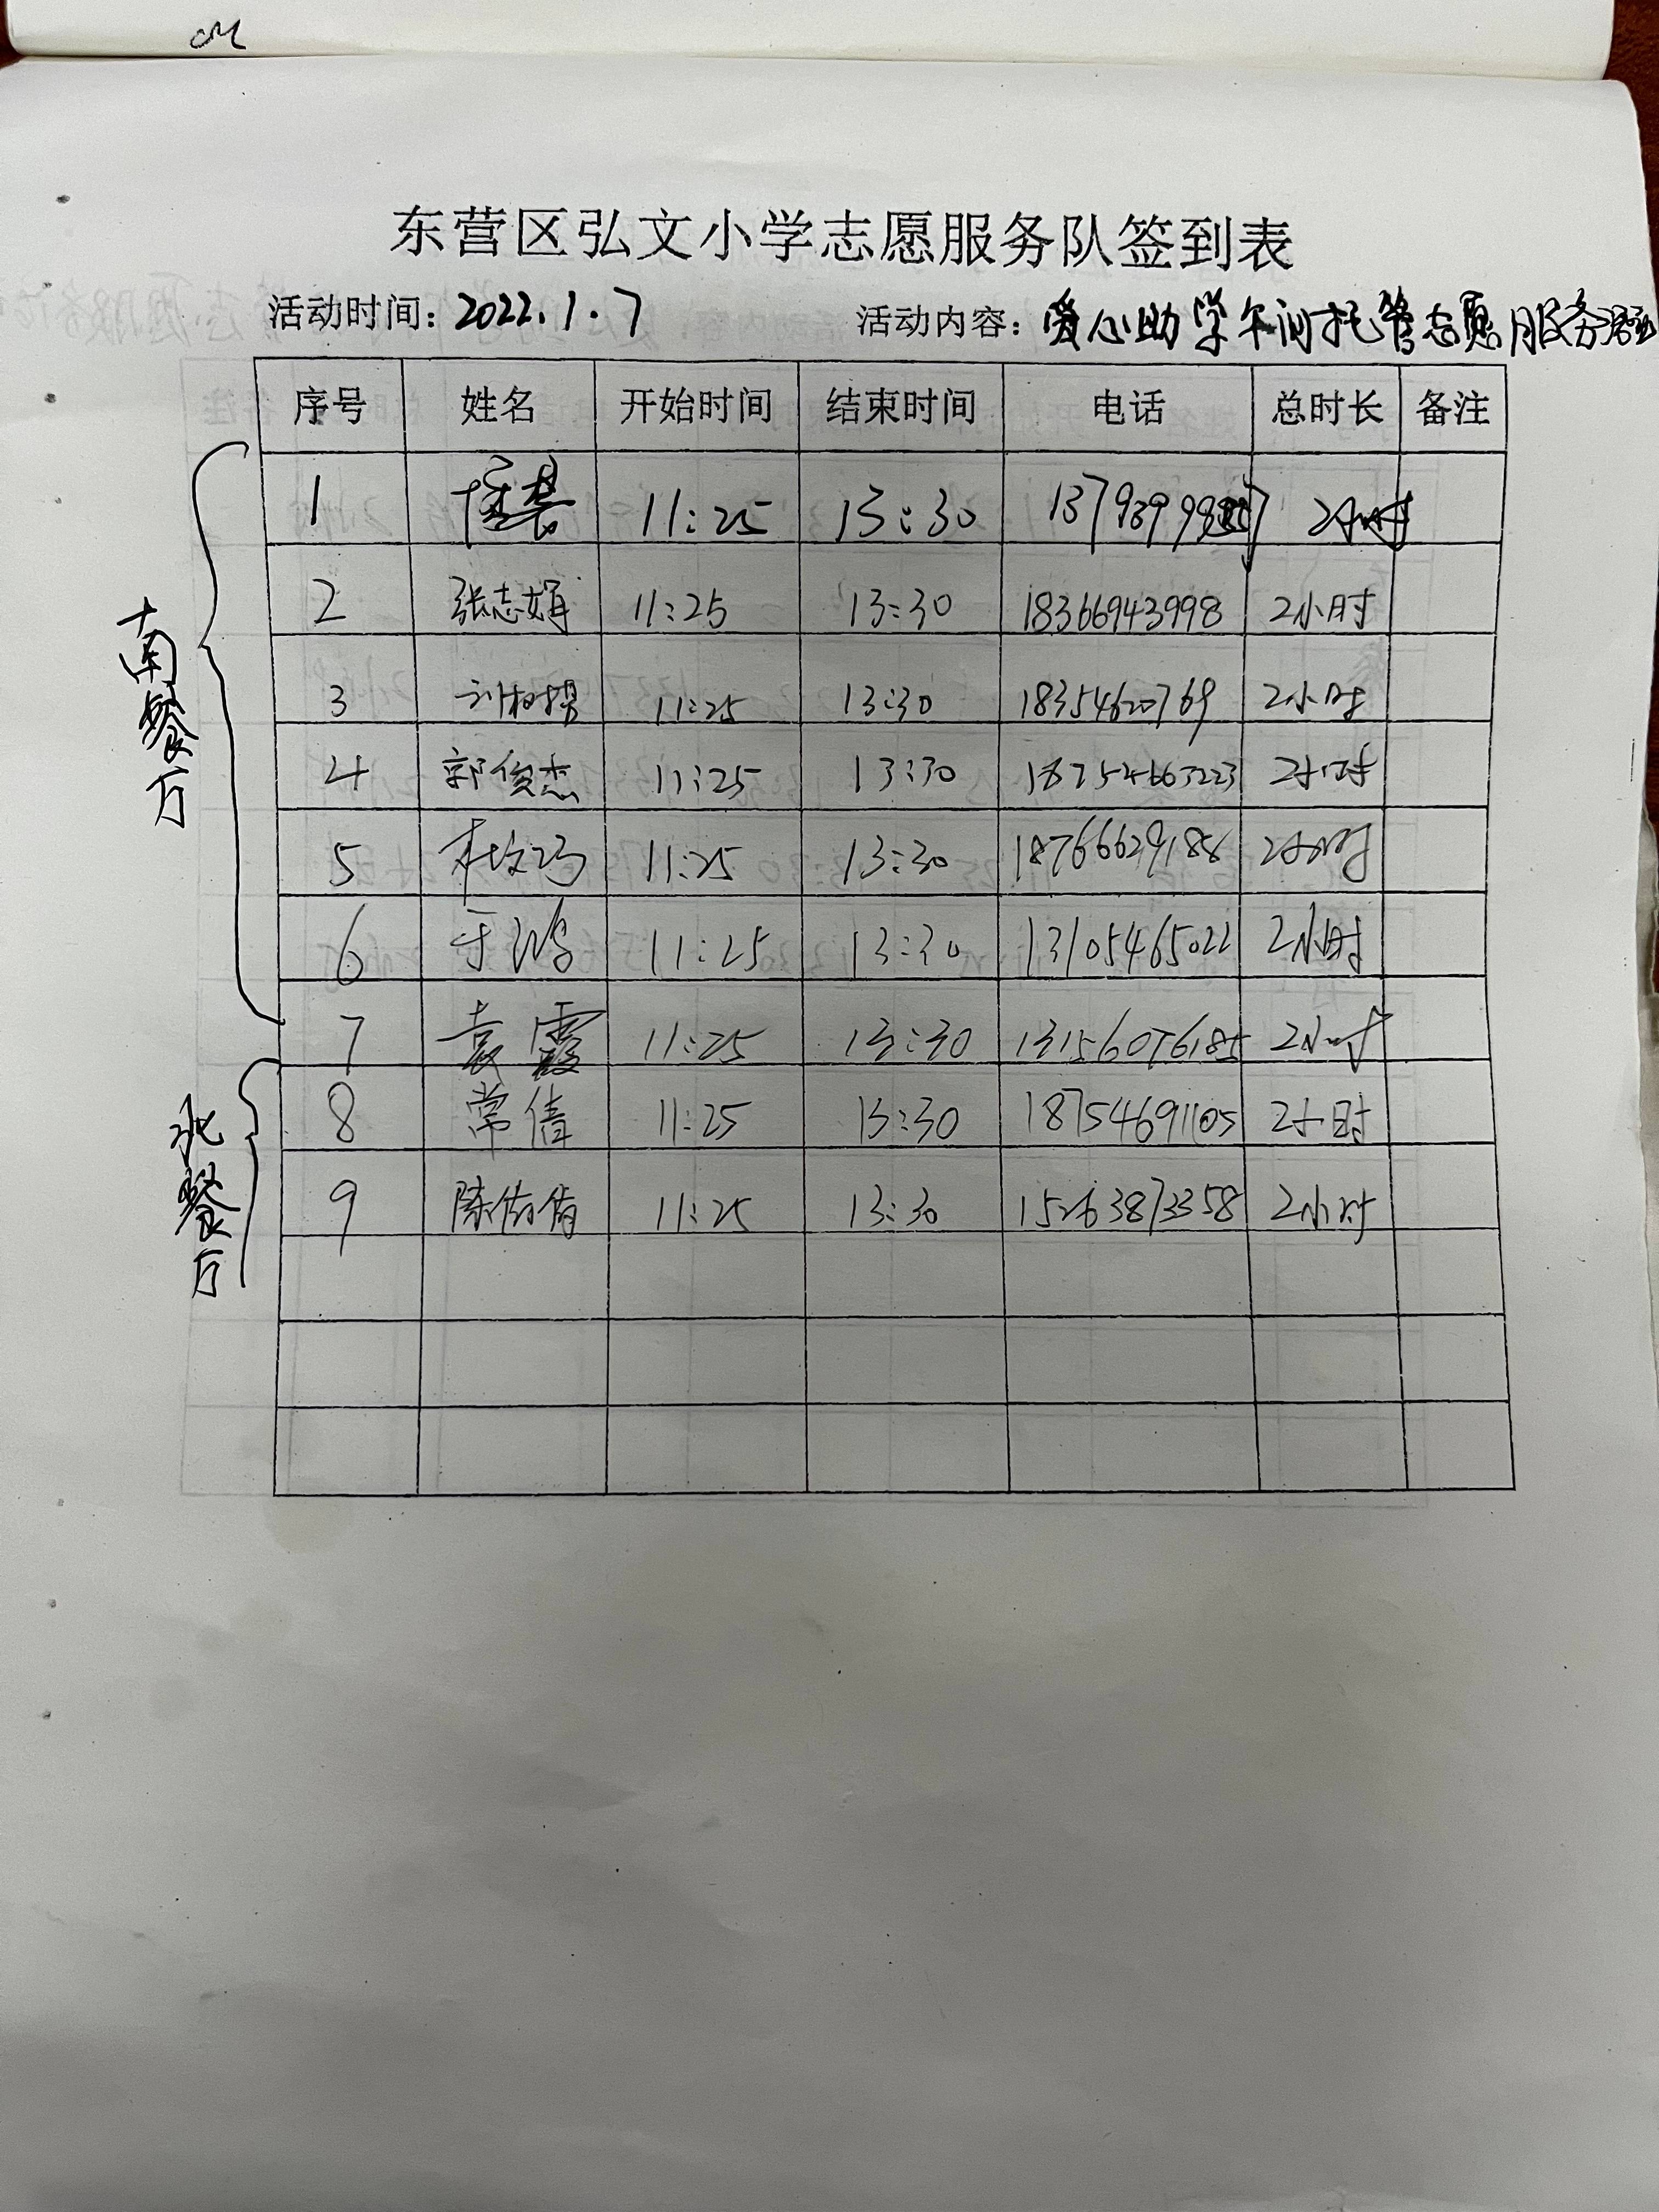 东营区弘文小学志愿服务队签到表
活动时间：2022.1.7 活动内容：爱心助学午间托管志愿服务活动
序号 姓名 开始时间 结束时间 电话 总时长 备注
南餐厅
1 11:25 13:30 2小时
2 张志娟 11:25 13:30 18366943998 2小时
3 11:25 13:30 18354620769 2小时
4 郭俊杰 11:25 13:30 18754663223 2小时
5 11:25 13:30 18766629188 2小时
6 于鸿 11:25 13:30 13105465022 2小时
7 袁霞 11:25 13:30 13156076185 2小时
北餐厅
8 常倩 11:25 13:30 18754691105 2小时
9 陈倩倩 11:25 13:30 15263873358 2小时